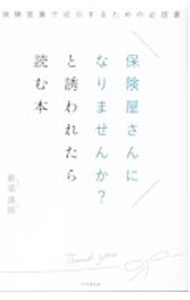 保険営業で成功するための必読書
保険屋さんに
なりませんか?
と誘われたら
読む本
Thank you